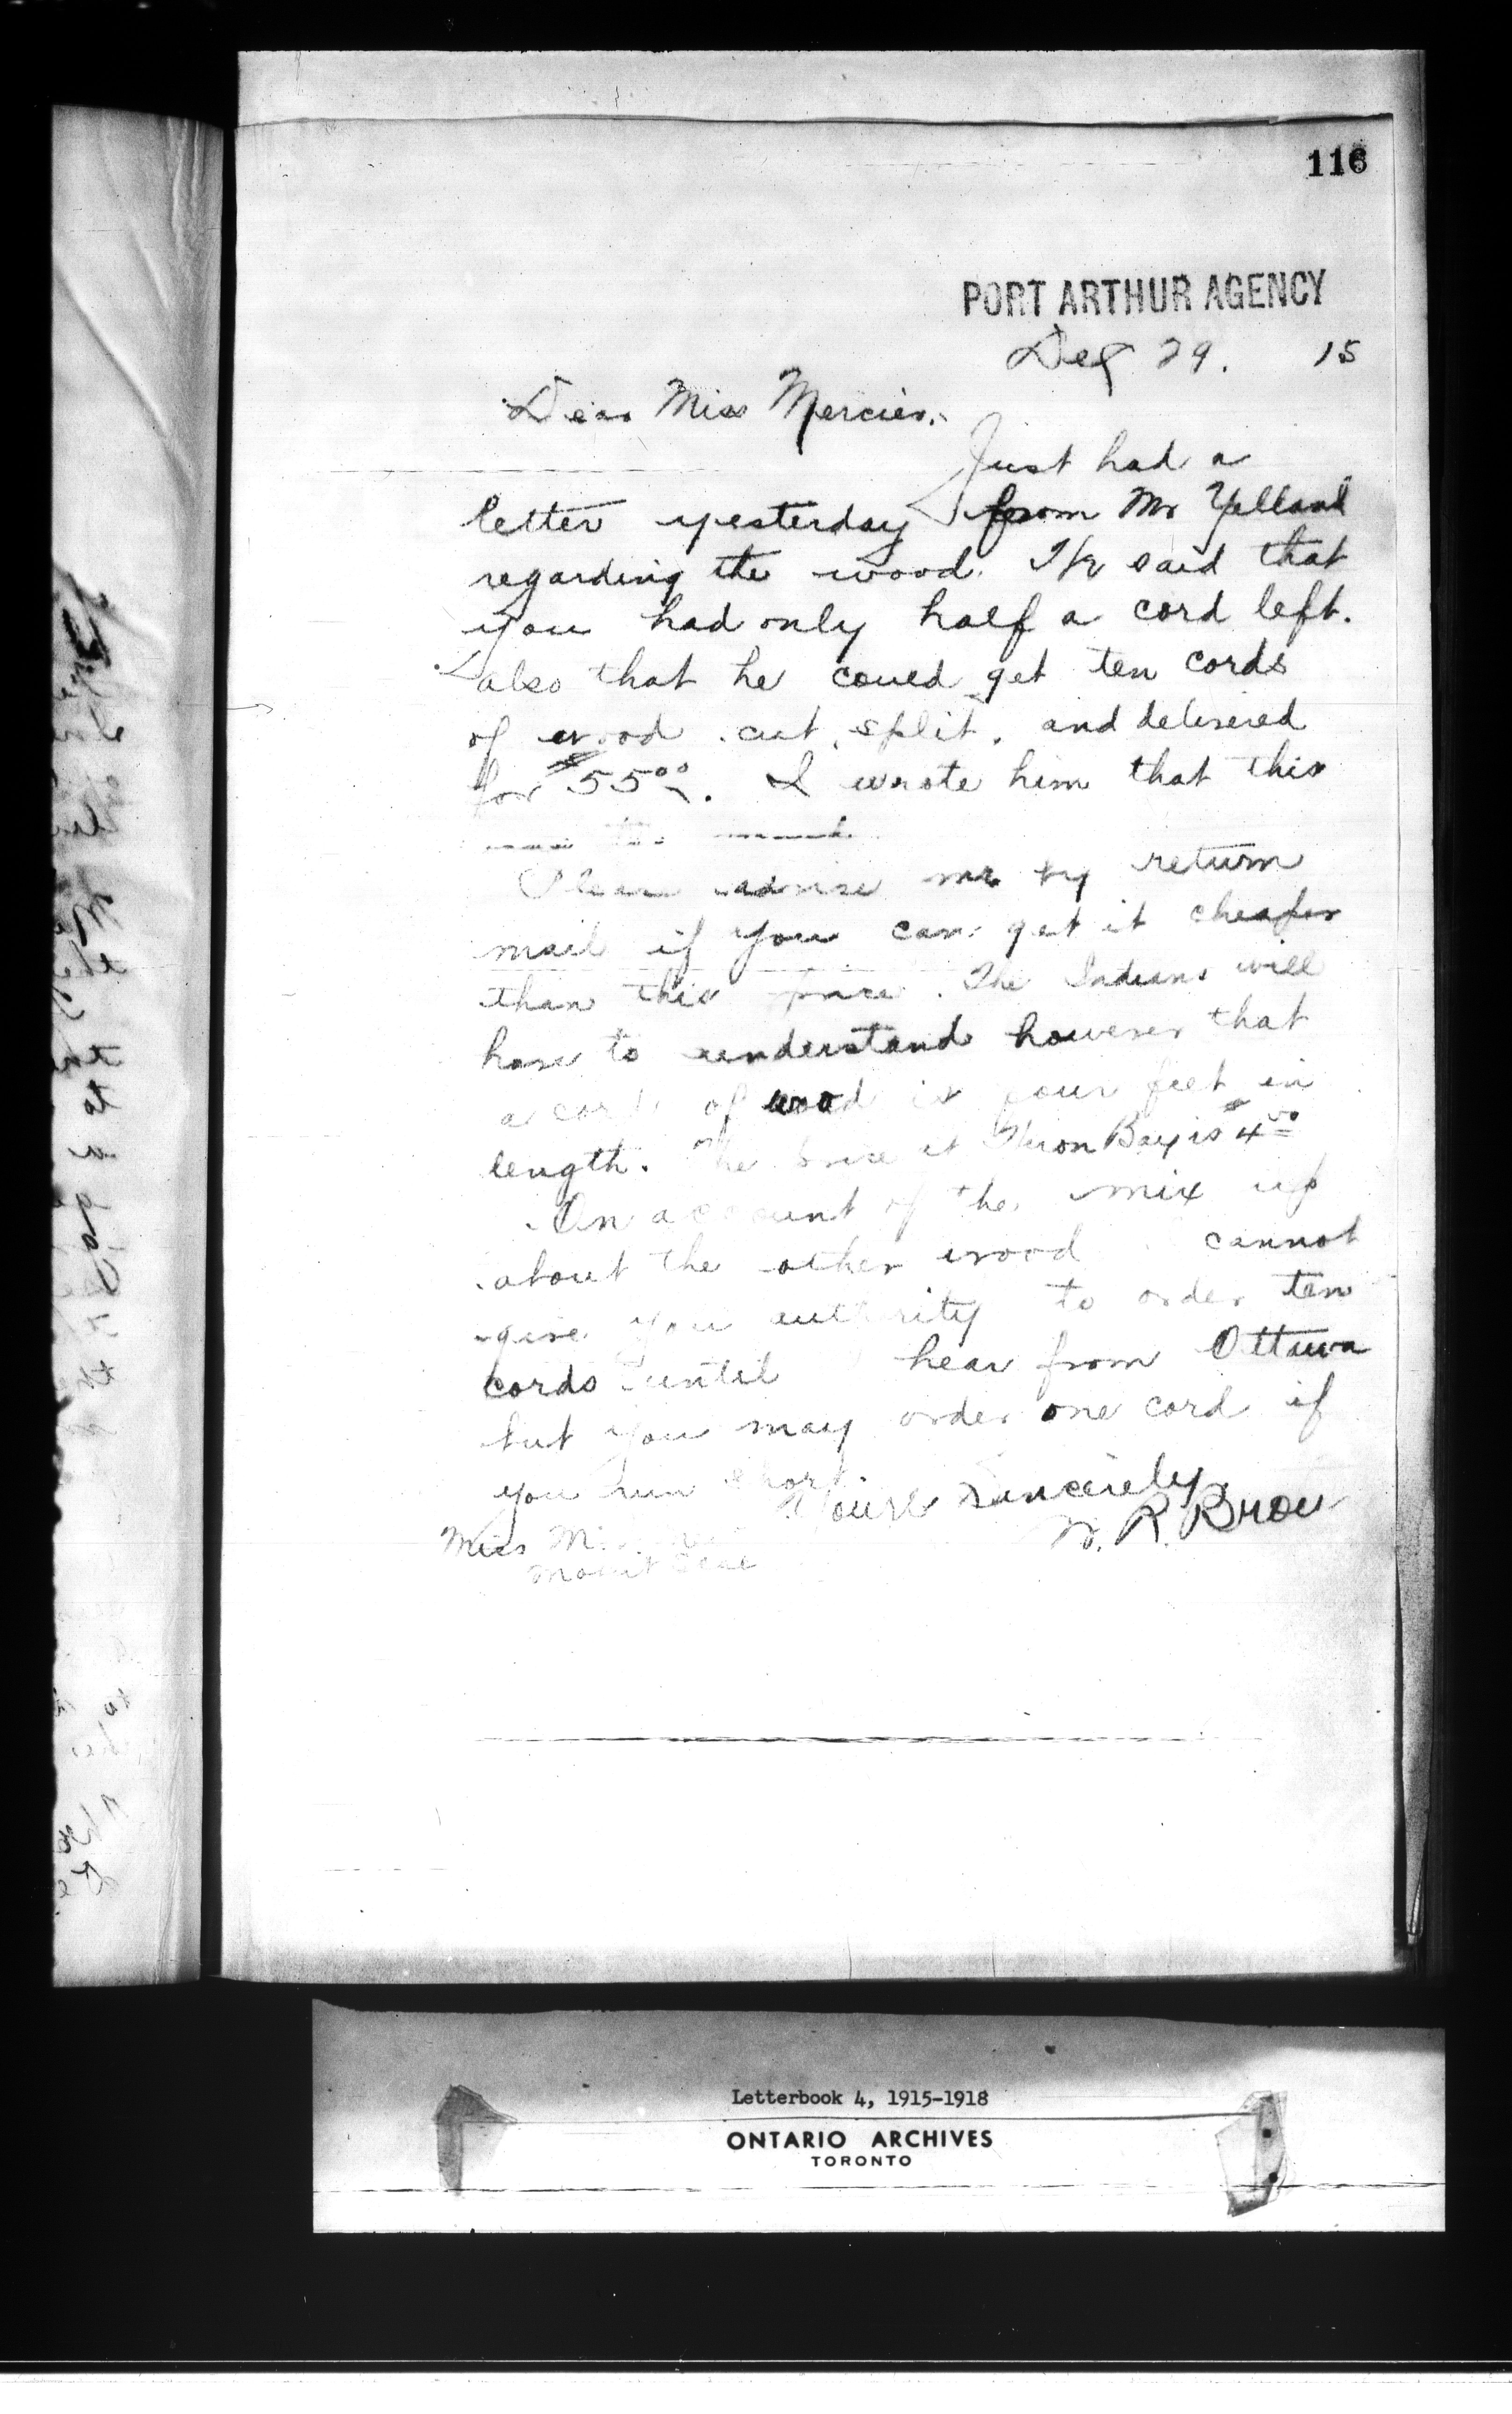 116
PORT ARTHUR AGENCY
Dec 29. 15
Dear Miss Mercier.
Just had a
letter yesterday from Mr Yelland
regarding the wood. He said that
you had only half a cord left.
also that he could get ten cords
of wood cut, split, and delivered
for $55.00. I wrote him that this
Please advise me by return
mail if you can get it cheaper
than this price. The Indians will
have to understand however that
a cord of wood is four feet in
length. The price at Heron Bay is $4.00
On account of the mix up
about the other wood cannot
give you authority to order ten
cords until hear from Ottawa
but you may order one cord if
you run short.
Yours Sincerely,
W. R. Brow
Miss
Letterbook 4, 1915-1918
ONTARIO ARCHIVES
TORONTO